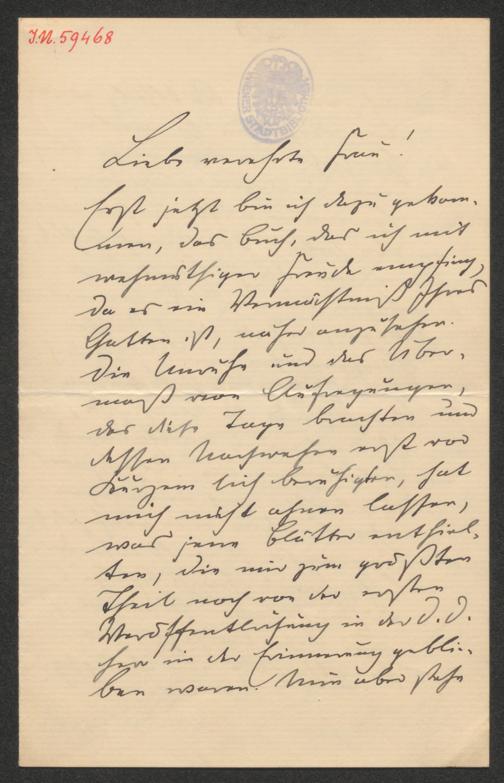 J.N. 59468
WIENER STADTBIBLIOTHEK
Liebe verehrte Frau!
Erst jetzt bin ich dazu gekom-
men, das Buch, das ich mit
wehmüthiger Freude empfing,
da es ein Vermächtniß Ihres
Gatten ist, näher anzusehen.
Die Unruhe und das Über-
maß von Aufregungen,
das diese Tage brachten und
dessen Nachwehen erst vor
Kurzem sich beruhigten, hat
mich nicht ahnen lassen,
was jene Blätter enthiel-
ten, die mir zum größten
Theil noch von der ersten
Veröffentlichung in der D. J.
her in der Erinnerung geblie-
ben waren. Nun aber stehe